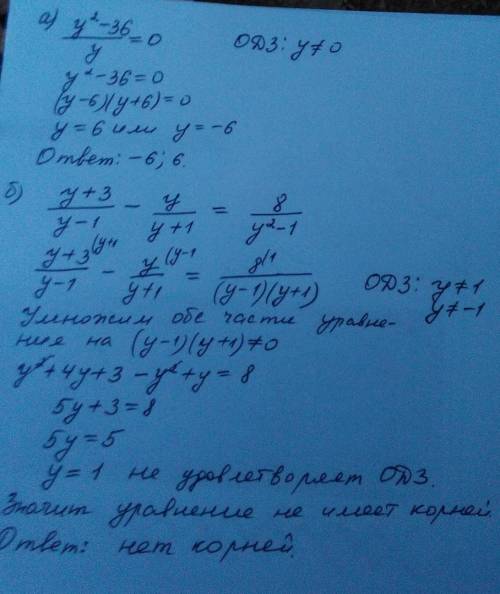 а) y²-36/y = 0 ОДЗ: y≠0
y²-36=0
(y-6)(y+6)=0
y=6 или y=-6
Ответ: -6; 6.
б) y+3/y-1 - y/y+1 = 8/y²-1
y+3(y+1/y-1 - y(y-1/y+1 = 8(1/(y-1)(y+1) ОДЗ: y≠1
y≠-1
Умножим обе части уравне-
ния на (y-1)(y+1)≠0
y²+4y+3-y²+y=8
5y+3=8
5y=5
y=1 не удовлетворяет ОДЗ.
Значит уравнение не имеет корней.
Ответ: нет корней.